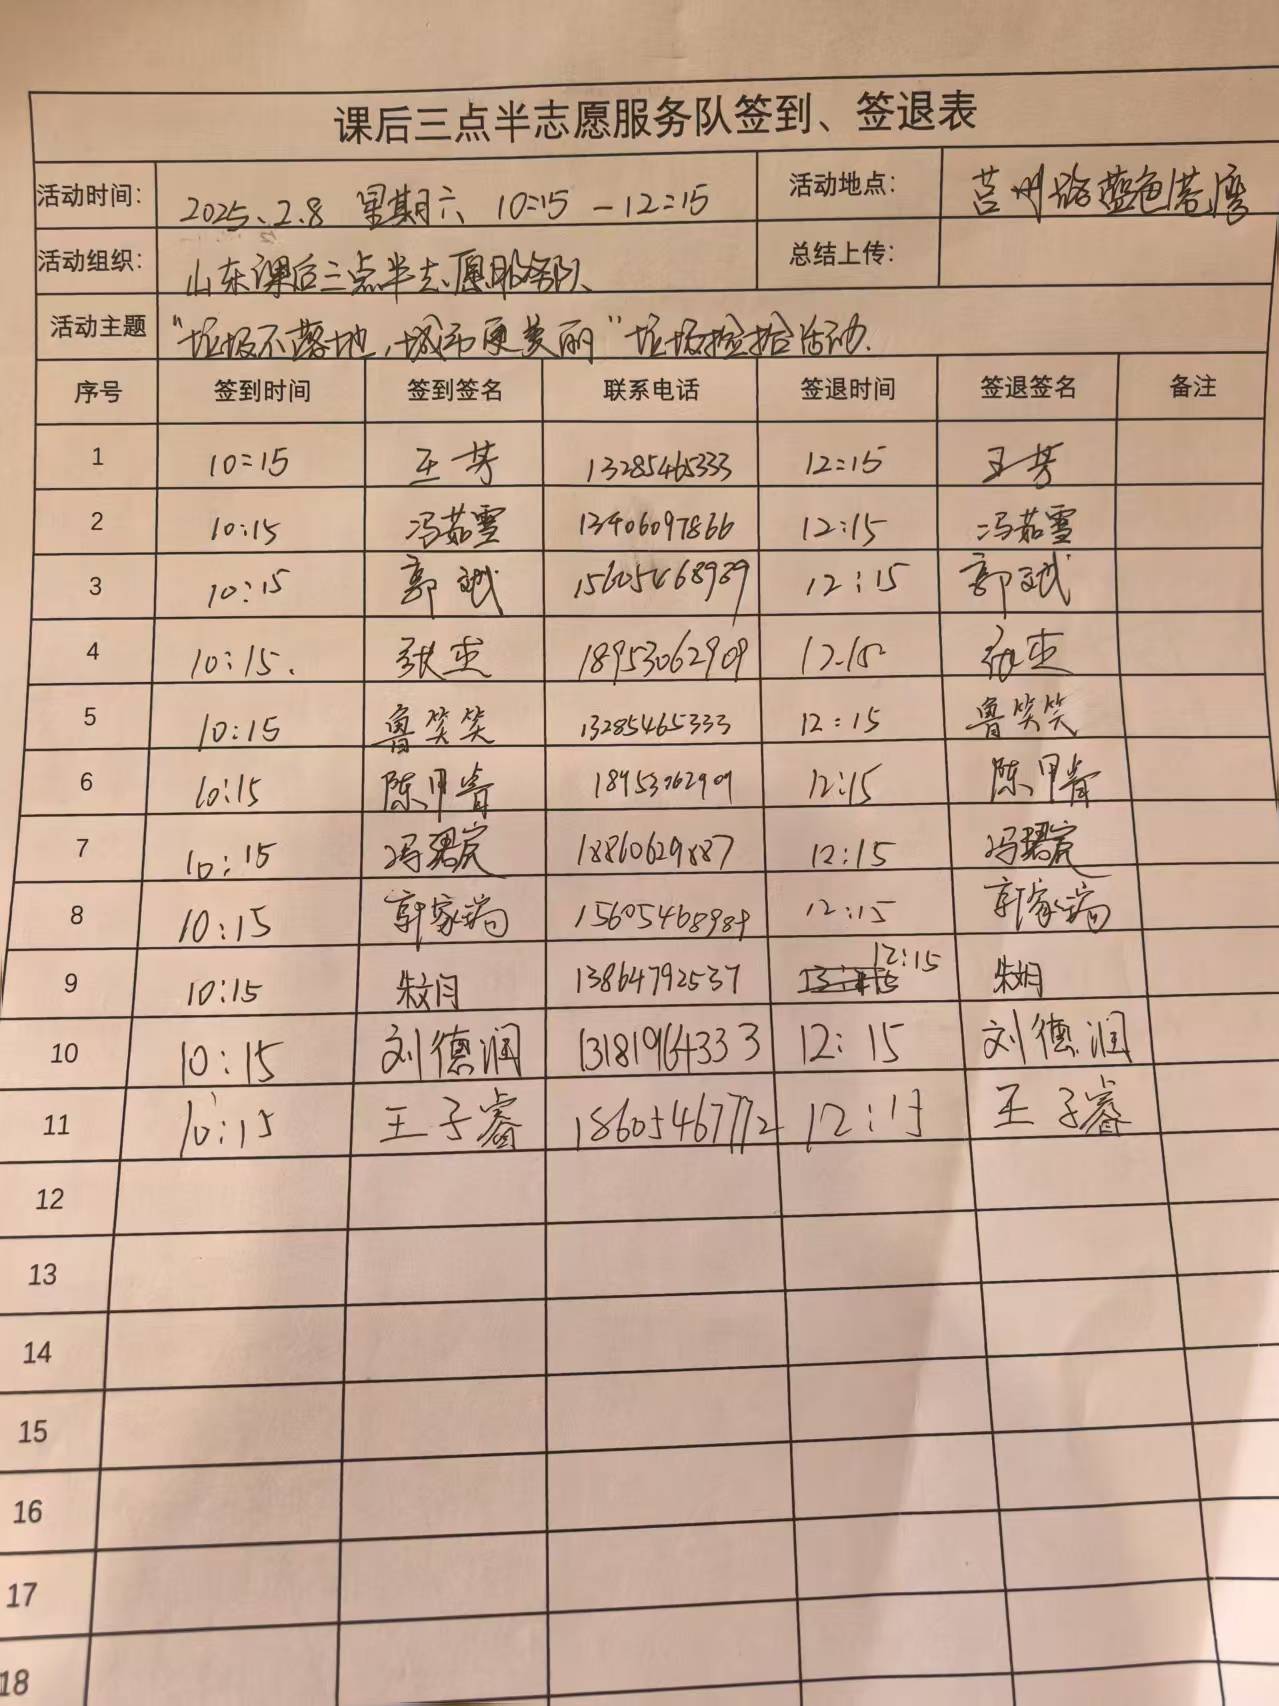 课后三点半志愿服务队签到、签退表
活动时间: 2025.2.8 星期六 10:15-12:15 活动地点: 莒州路蓝色港湾
活动组织: 山东课后三点半志愿服务队 总结上传:
活动主题 "垃圾不落地,城市更美丽"垃圾捡拾活动.
序号 签到时间 签到签名 联系电话 签退时间 签退签名 备注
1 10:15 王芳 13285465333 12:15 王芳
2 10:15 冯茹雪 13406097866 12:15 冯茹雪
3 10:15 郭斌 15605468989 12:15 郭斌
4 10:15. 张 18953062909 12.15 张
5 10:15 鲁笑笑 13285465333 12:15 鲁笑笑
6 10:15 陈甲 18953062909 12:15 陈甲
7 10:15 冯 18860629887 12:15 冯
8 10:15 郭家瑞 15605468989 12:15 郭家瑞
9 10:15 朱 13864792537 12:15 朱
10 10:15 刘德润 13181964333 12:15 刘德润
11 10:15 王子睿 18605467772 12:15 王子睿
12
13
14
15
16
17
18